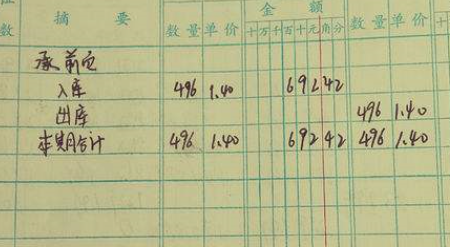 金 额
数 摘 要 数量 单价 十万千百十元角分 数量 单价 十
承前页
入库 496 1.40 69242
出库 496 1.40
本期合计 496 1.40 69242 496 1.40